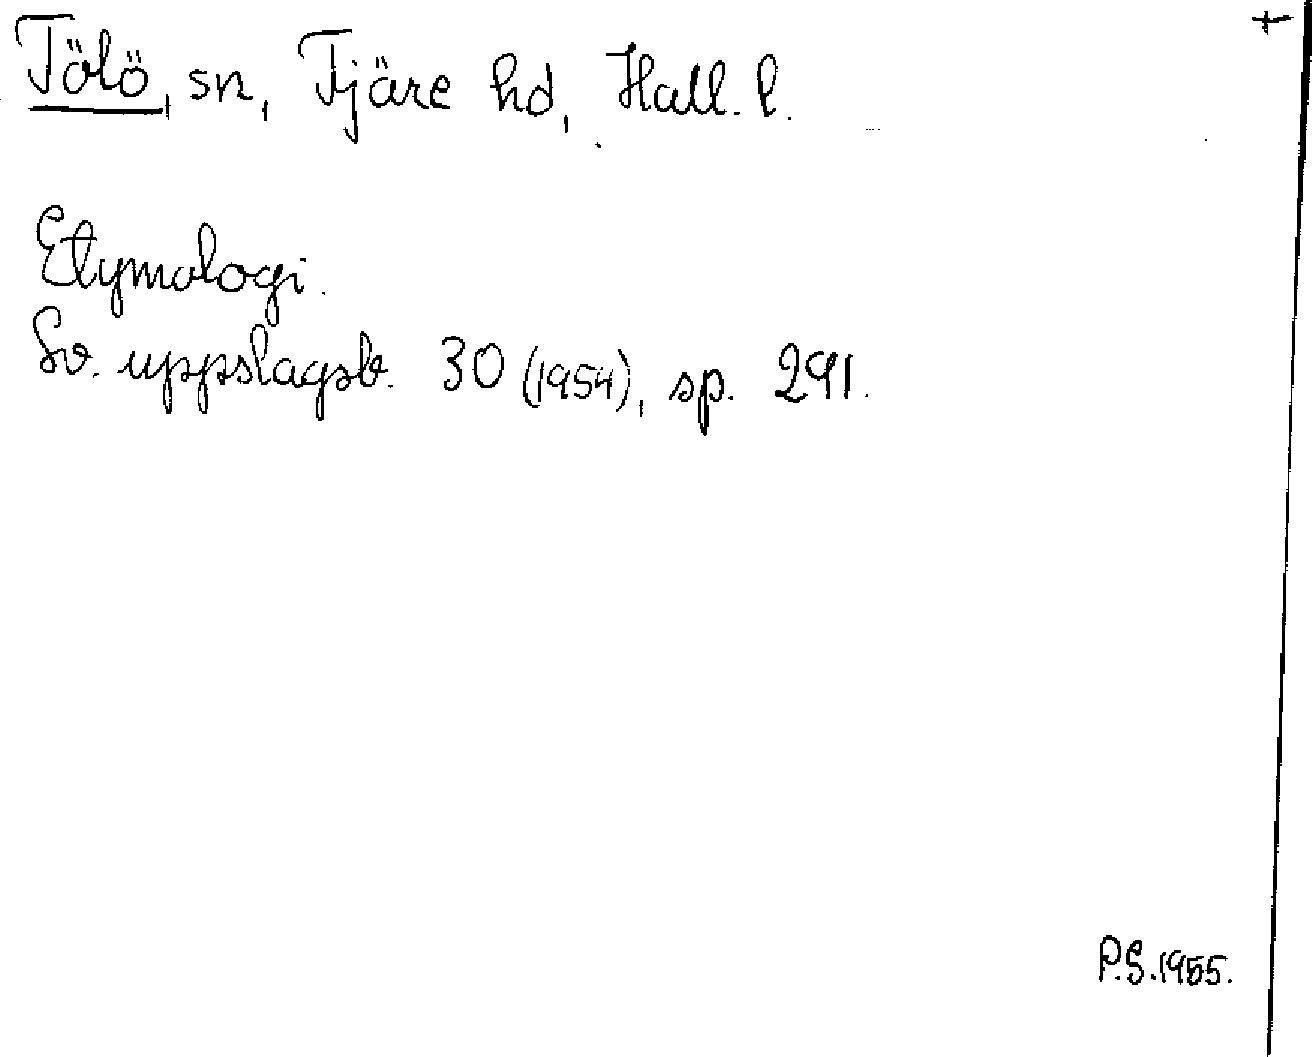 Tölö, sn, Fjäre hd, Hall. l.
Etymologi.
Sv. uppslagsb. 30 (1954), sp. 291.
P.S. 1955.